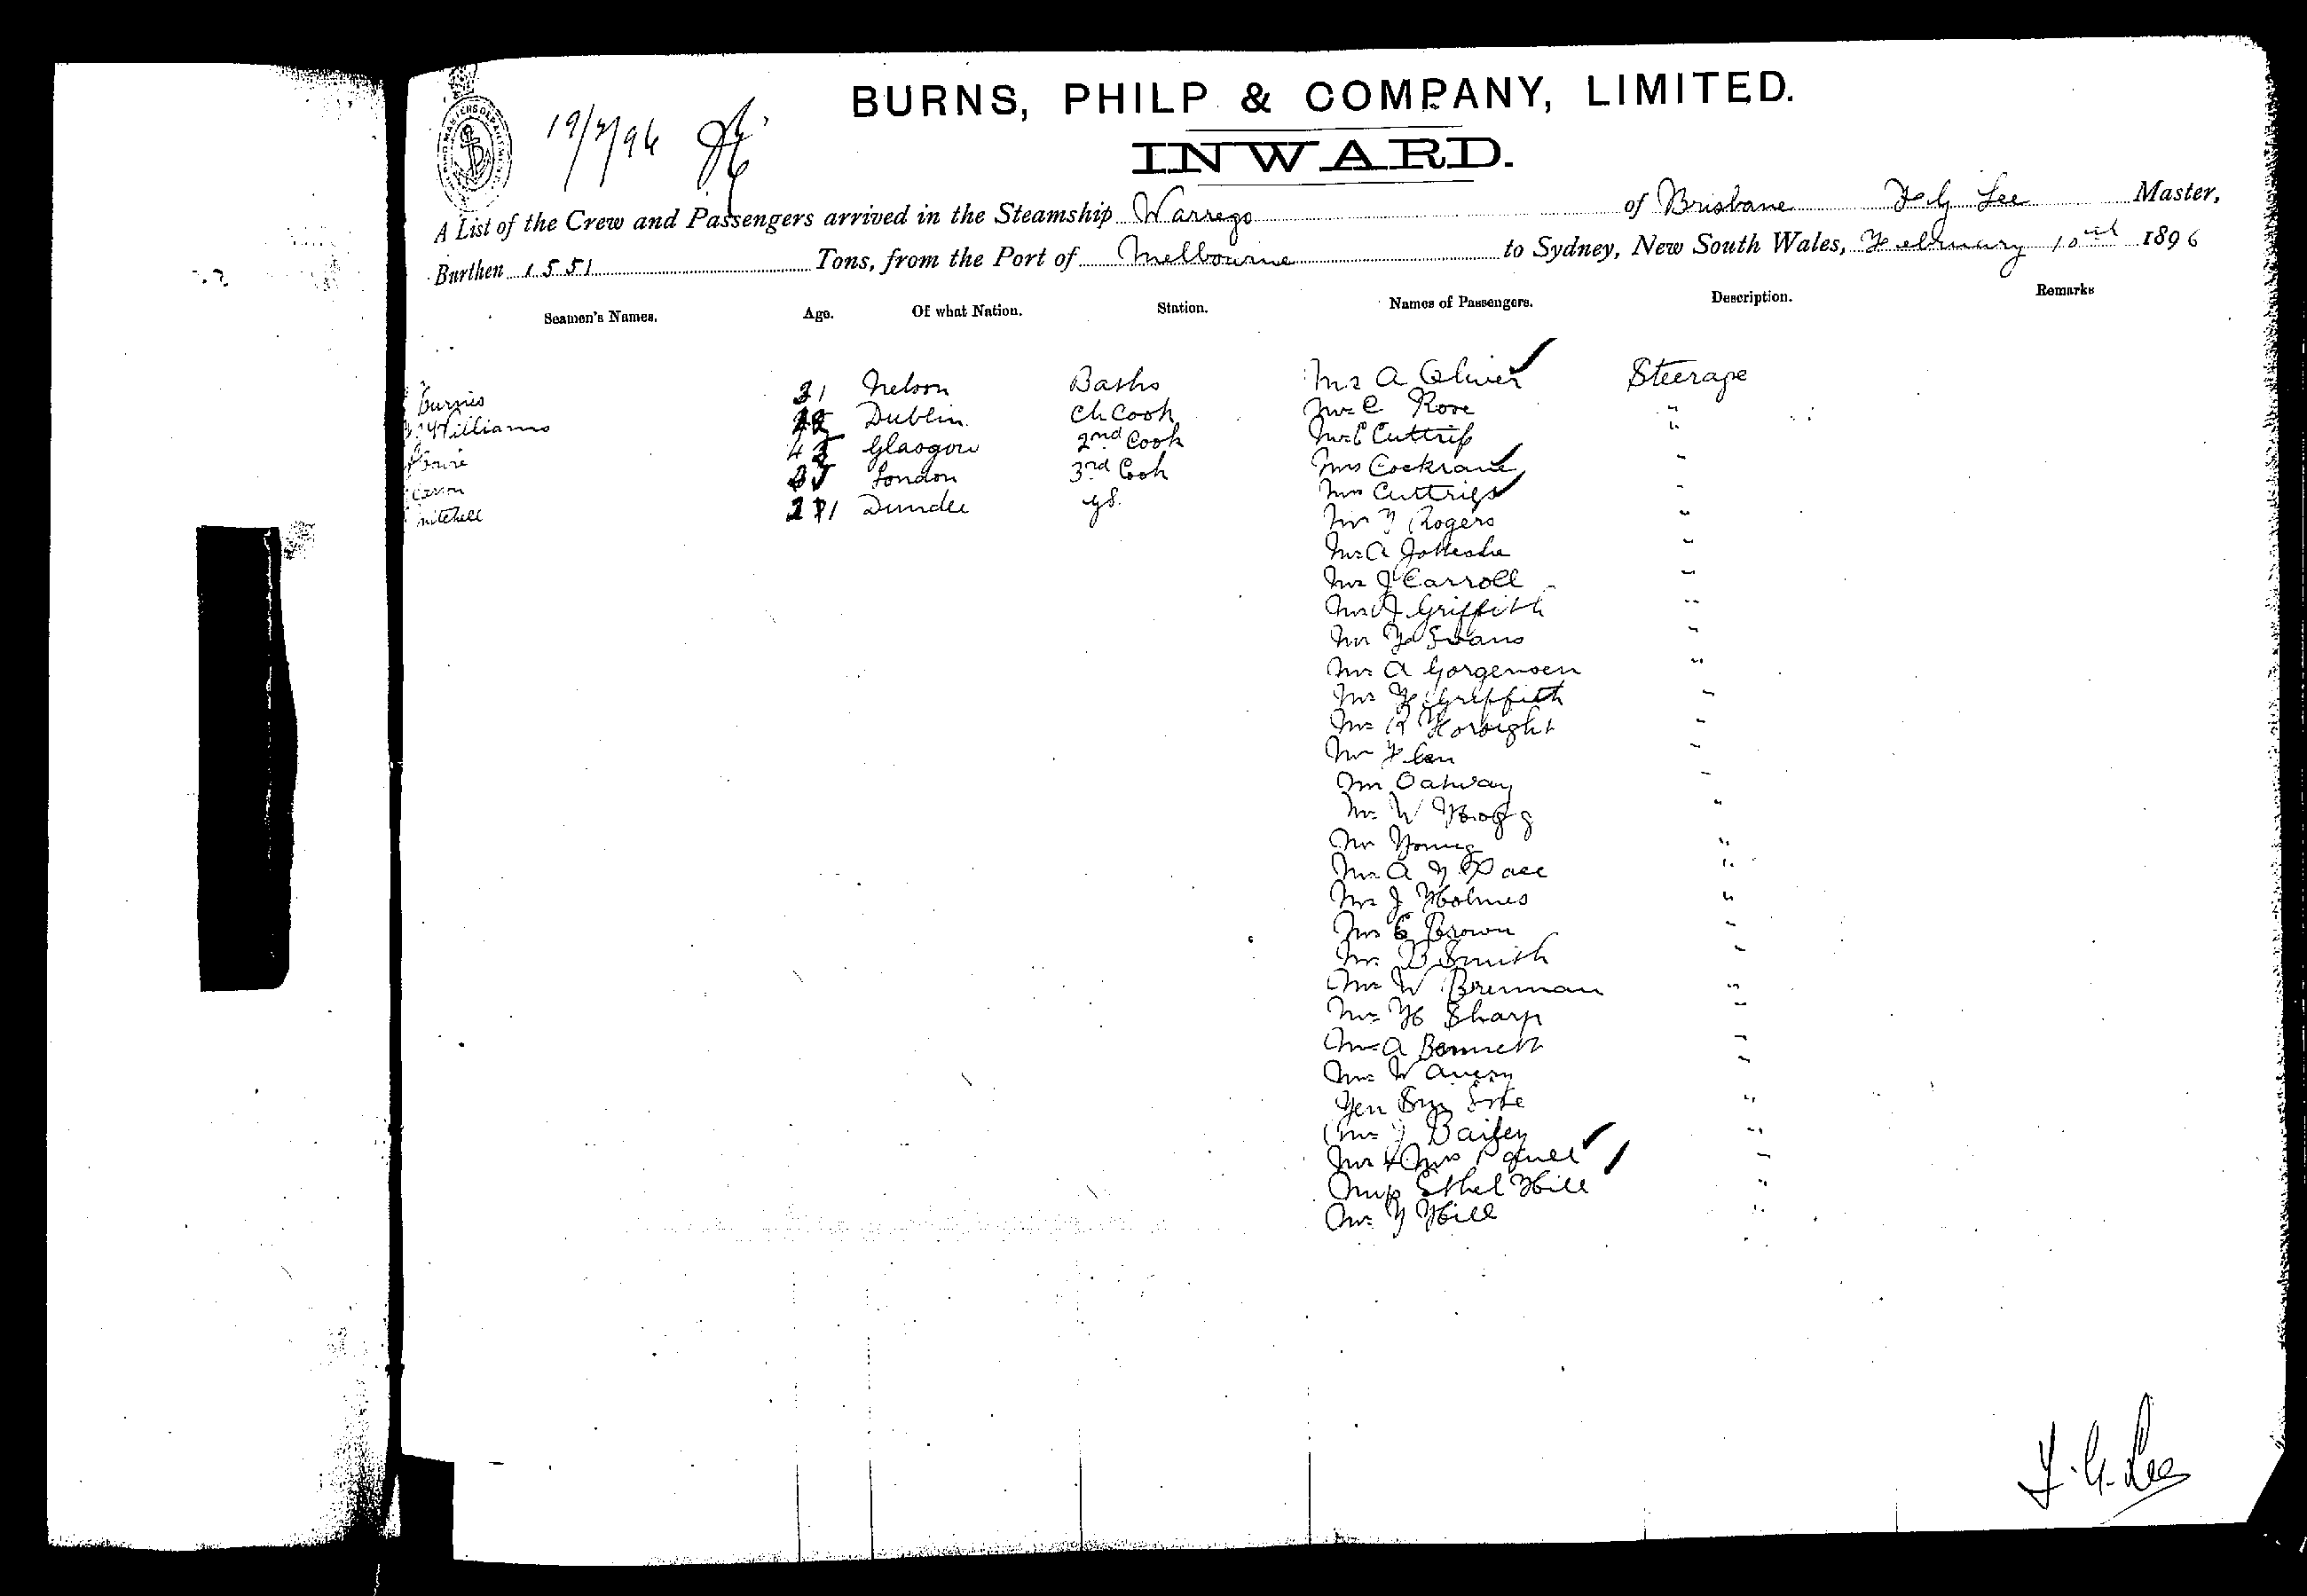 BURNS, PHILP & COMPANY, LIMITED.
19/2/96
INWARD.
A List of the Crew and Passengers arrived in the Steamship Warrego of Brisbane F G Lee Master,
Burthen 1551 Tons, from the Port of Melbourne to Sydney, New South Wales, February 10th 1896
Seamen's Names. Age. Of what Nation. Station. Names of Passengers. Description. Remarks
Burnes 31 Nelson Baths Mr A Oliver Steerage
Williams Dublin Ch Cook Mr C Rose "
Glasgow 2nd Cook Mr E Cuttrif "
London 3rd Cook Mrs Cockrane "
Mitchell Dundee gs. Mrs Cuttrif "
Mr Rogers "
Mr A "
Mr J Carroll "
Mr J Griffith "
Mr Evans "
Mr A Gorgensen "
Mr Griffith "
Mr R "
Mr "
Mr Oatway "
Mr W Hogg "
Mr Young "
Mr A Pace "
Mr J Holmes "
Mr E Brown "
Mr B Smith "
Mr W Brennan "
Mr H Sharp "
Mr A Bennett "
Mr W Avery "
Yen Sin "
Mr J Bailey "
Mr & Mrs "
Miss Ethel Hill "
Mr Hill "
F. G. Lee